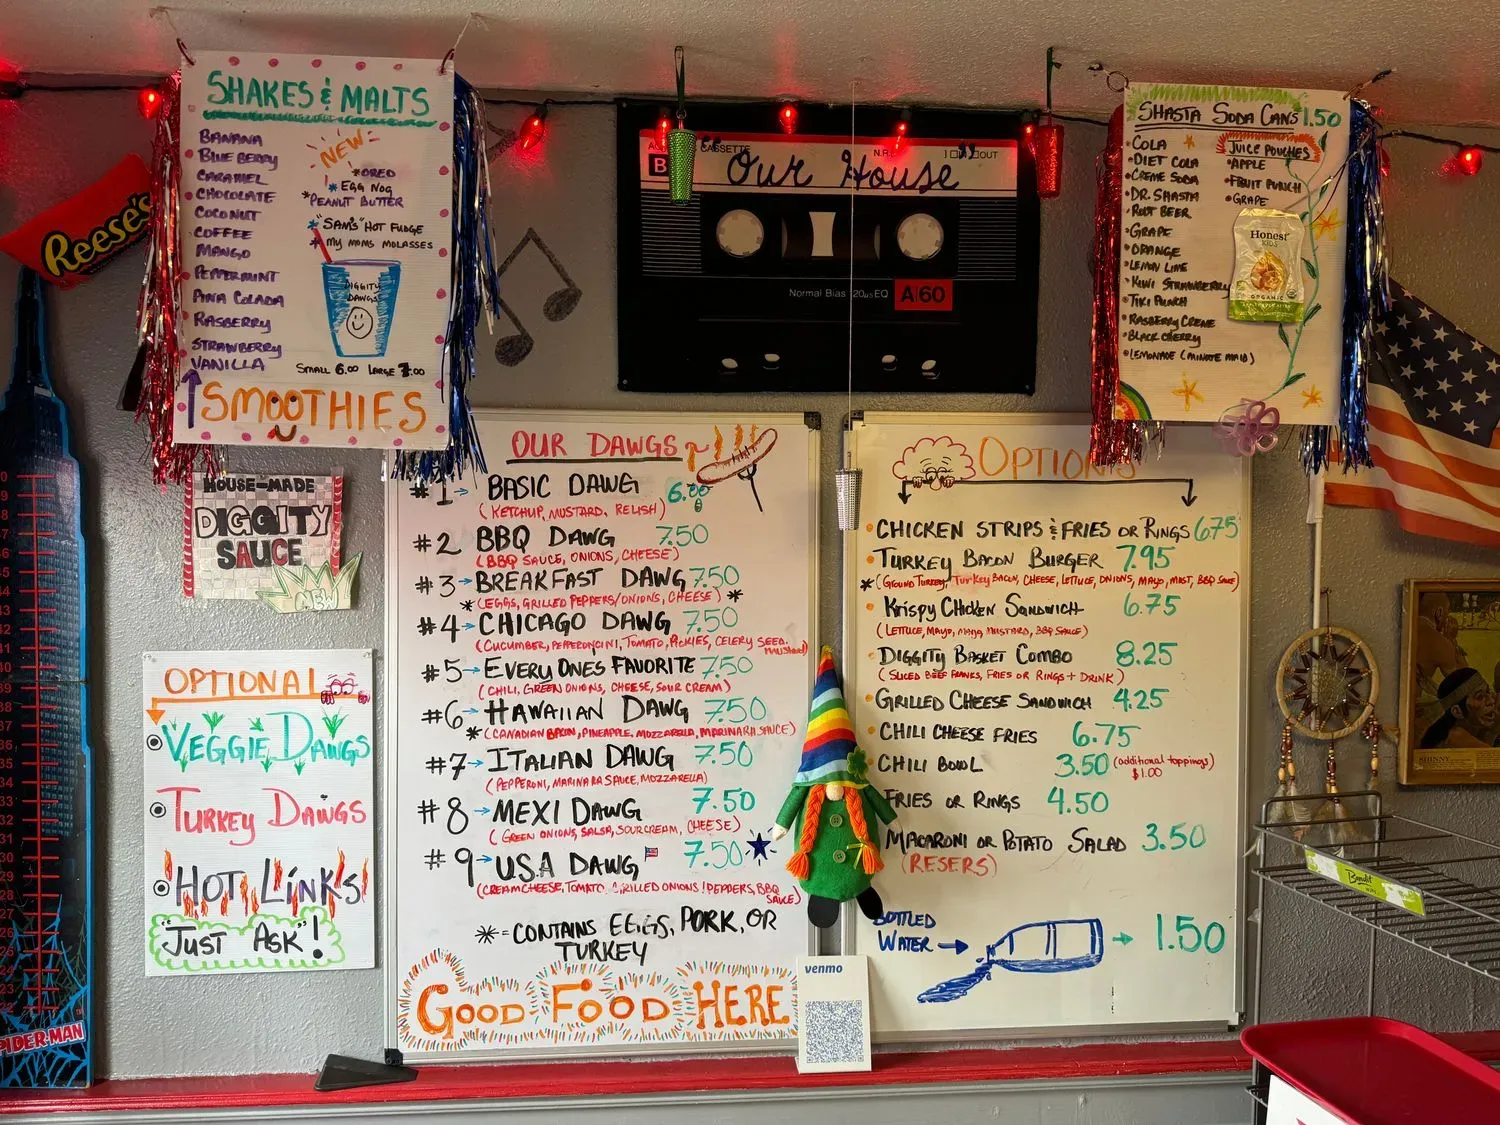 SHAKES & MALTS
BANANA
BLUE BERRY
CARAMEL
CHOCOLATE
COCONUT
COFFEE
MANGO
PEPPERMINT
PINA COLADA
RASBERRY
STRAWBERRY
VANILLA
NEW
*OREO
* EGG NOG
*PEANUT BUTTER
* "SAM'S" HOT FUDGE
* MY MOMS MOLASSES
DIGGITY
DAWGS
SMALL 6.00 LARGE 7.00
SMOOTHIES
REESE'S
CASSETTE
B
N.R.
IN OUT
"Our House"
Normal Bias 120μs EQ
A 60
SHASTA SODA CANS 1.50
COLA
DIET COLA
CREME SODA
DR. SHASTA
ROOT BEER
GRAPE
ORANGE
LEMON LIME
KIWI STRAWBERRY
TIKI PUNCH
RASBERRY CREME
BLACK CHERRY
LEMONADE (MINUTE MAID)
JUICE POUCHES
APPLE
FRUIT PUNCH
GRAPE
Honest
KIDS
ORGANIC
HOUSE-MADE
DIGGITY
SAUCE
NEW
OPTIONAL
VEGGIE DAWGS
TURKEY DAWGS
HOT LINKS
"JUST ASK"!
SPIDER-MAN
OUR DAWGS
#1 BASIC DAWG 6.00
(KETCHUP, MUSTARD, RELISH)
#2 BBQ DAWG 7.50
(BBQ SAUCE, ONIONS, CHEESE)
#3 BREAKFAST DAWG 7.50
* (EGGS, GRILLED PEPPERS/ONIONS, CHEESE) *
#4 CHICAGO DAWG 7.50
(CUCUMBER, PEPPERONCINI, TOMATO, PICKLES, CELERY SEED, MUSTARD)
#5 EVERYONES FAVORITE 7.50
(CHILI, GREEN ONIONS, CHEESE, SOUR CREAM)
#6 HAWAIIAN DAWG 7.50
* (CANADIAN BACON, PINEAPPLE, MOZZARELLA, MARINARA SAUCE)
#7 ITALIAN DAWG 7.50
(PEPPERONI, MARINARA SAUCE, MOZZARELLA)
#8 MEXI DAWG 7.50
(GREEN ONIONS, SALSA, SOUR CREAM, CHEESE)
#9 U.S.A DAWG 7.50
(CREAM CHEESE, TOMATO, GRILLED ONIONS/PEPPERS, BBQ SAUCE)
* = CONTAINS EGGS, PORK, OR
TURKEY
GOOD FOOD HERE
venmo
OPTIONS
CHICKEN STRIPS & FRIES OR RINGS 6.75
TURKEY BACON BURGER 7.95
* (GROUND TURKEY, TURKEY BACON, CHEESE, LETTUCE, ONIONS, MAYO, MUST, BBQ SAUCE)
KRISPY CHICKEN SANDWICH 6.75
(LETTUCE, MAYO, MUSTARD, BBQ SAUCE)
DIGGITY BASKET COMBO 8.25
(SLICED BEEF FRANKS, FRIES OR RINGS + DRINK)
GRILLED CHEESE SANDWICH 4.25
CHILI CHEESE FRIES 6.75
CHILI BOWL 3.50 (additional toppings)
$1.00
FRIES OR RINGS 4.50
MACARONI OR POTATO SALAD 3.50
(RESERS)
BOTTLED
WATER 1.50